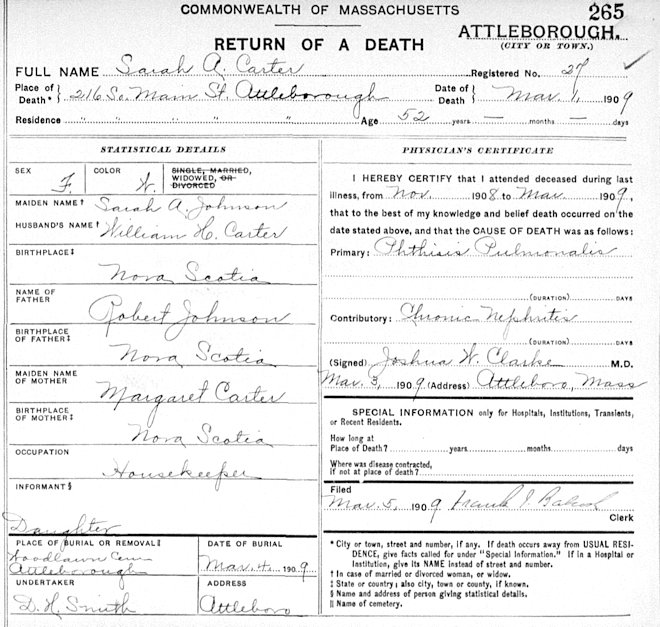 COMMONWEALTH OF MASSACHUSETTS
265
RETURN OF A DEATH
ATTLEBOROUGH.
(CITY OR TOWN.)
FULL NAME Sarah A. Carter Registered No. 27
Place of Death* } 216 So. Main St. Attleborough Date of Death } Mar. 1, 1909
Residence " " " " Age 52 years — months — days
STATISTICAL DETAILS
SEX F.
COLOR W.
SINGLE, MARRIED, WIDOWED, OR DIVORCED
MAIDEN NAME† Sarah A. Johnson
HUSBAND'S NAME† William H. Carter
BIRTHPLACE‡
Nova Scotia
NAME OF FATHER
Robert Johnson
BIRTHPLACE OF FATHER‡
Nova Scotia
MAIDEN NAME OF MOTHER
Margaret Carter
BIRTHPLACE OF MOTHER‡
Nova Scotia
OCCUPATION
Housekeeper
INFORMANT§
Daughter
PLACE OF BURIAL OR REMOVAL‖
Woodlawn Cem
Attleborough
DATE OF BURIAL
Mar. 4. 1909
UNDERTAKER
D. H. Smith
ADDRESS
Attleboro
PHYSICIAN'S CERTIFICATE
I HEREBY CERTIFY that I attended deceased during last
illness, from Nov. 1908 to Mar. 1909,
that to the best of my knowledge and belief death occurred on the
date stated above, and that the CAUSE OF DEATH was as follows:
Primary: Phthisis Pulmonalis
(DURATION) DAYS
Contributory: Chronic Nephritis
(DURATION) DAYS
(Signed) Joshua W. Clarke M.D.
Mar. 3, 1909 (Address) Attleboro, Mass
SPECIAL INFORMATION only for Hospitals, Institutions, Transients,
or Recent Residents.
How long at
Place of Death? years months days
Where was disease contracted,
if not at place of death?
Filed
Mar. 5, 1909 Frank I
Clerk
* City or town, street and number, if any. If death occurs away from USUAL RESI-
DENCE, give facts called for under "Special Information." If in a Hospital or
Institution, give its NAME instead of street and number.
† In case of married or divorced woman, or widow.
‡ State or country; also city, town or county, if known.
§ Name and address of person giving statistical details.
‖ Name of cemetery.